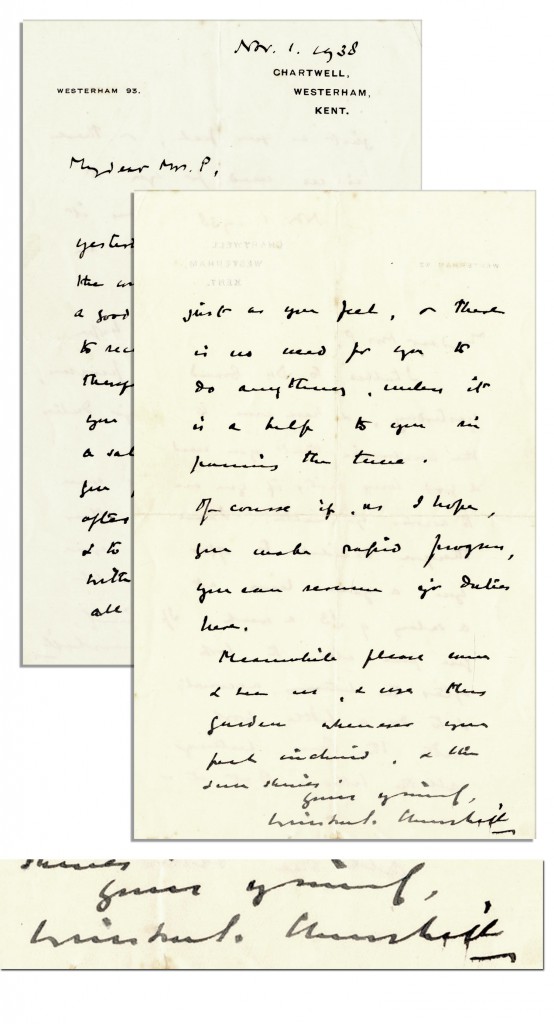 Nov. 1. 1938
CHARTWELL,
WESTERHAM 93.
WESTERHAM,
KENT.
My dear Mrs. P,
yesterd
the
a good
to rec
therap
you
a sal
you
after
& to
with
all
just as you feel, & there
is no need for you to
do anything, unless it
is a help to you in
passing the time.
Of course if, as I hope,
you make rapid progress,
you can resume yr duties
here.
Meanwhile please come
& see us, & use this
garden whenever you
feel inclined, & the
sun shines
yours
Winston S. Churchill
shines
yours
Winston S. Churchill